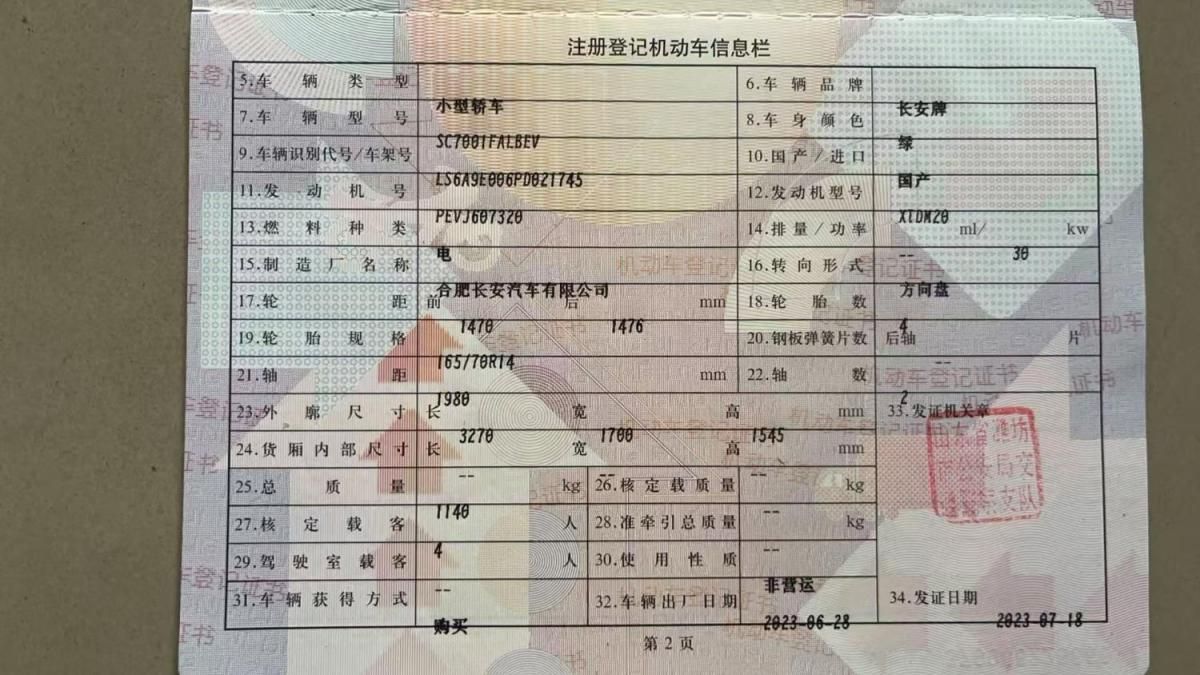 注册登记机动车信息栏
5.车辆类型 小型轿车 6.车辆品牌 长安牌
7.车辆型号 SC7001FALBEV 8.车身颜色 绿
9.车辆识别代号/车架号 LS6A9E006PD021745 10.国产/进口 国产
11.发动机号 PEVJ607320 12.发动机型号 XTDM20
13.燃料种类 电 14.排量/功率 -- ml/ 30 kw
15.制造厂名称 合肥长安汽车有限公司 16.转向形式 方向盘
17.轮距 前 1470 后 1476 mm 18.轮胎数 4
19.轮胎规格 165/70R14 20.钢板弹簧片数 后轴 -- 片
21.轴距 1980 mm 22.轴数 2
23.外廓尺寸 长 3270 宽 1700 高 1545 mm 33.发证机关章
24.货厢内部尺寸 长 -- 宽 -- 高 -- mm
山东省潍坊
市公安局交
通警察支队
25.总质量 1140 kg 26.核定载质量 -- kg
27.核定载客 4 人 28.准牵引总质量 -- kg
29.驾驶室载客 -- 人 30.使用性质 非营运
31.车辆获得方式 购买 32.车辆出厂日期 2023-06-28 34.发证日期 2023-07-18
第2页